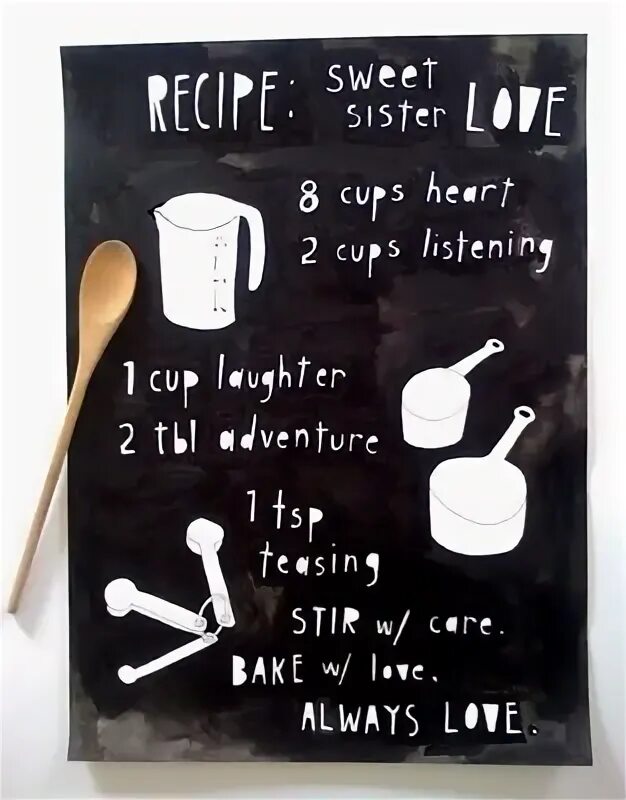 RECIPE: sweet sister LOVE
8 cups heart
2 cups listening
1 cup laughter
2 tbl adventure
1 tsp
teasing
STIR w/ care.
BAKE w/ love.
ALWAYS LOVE.